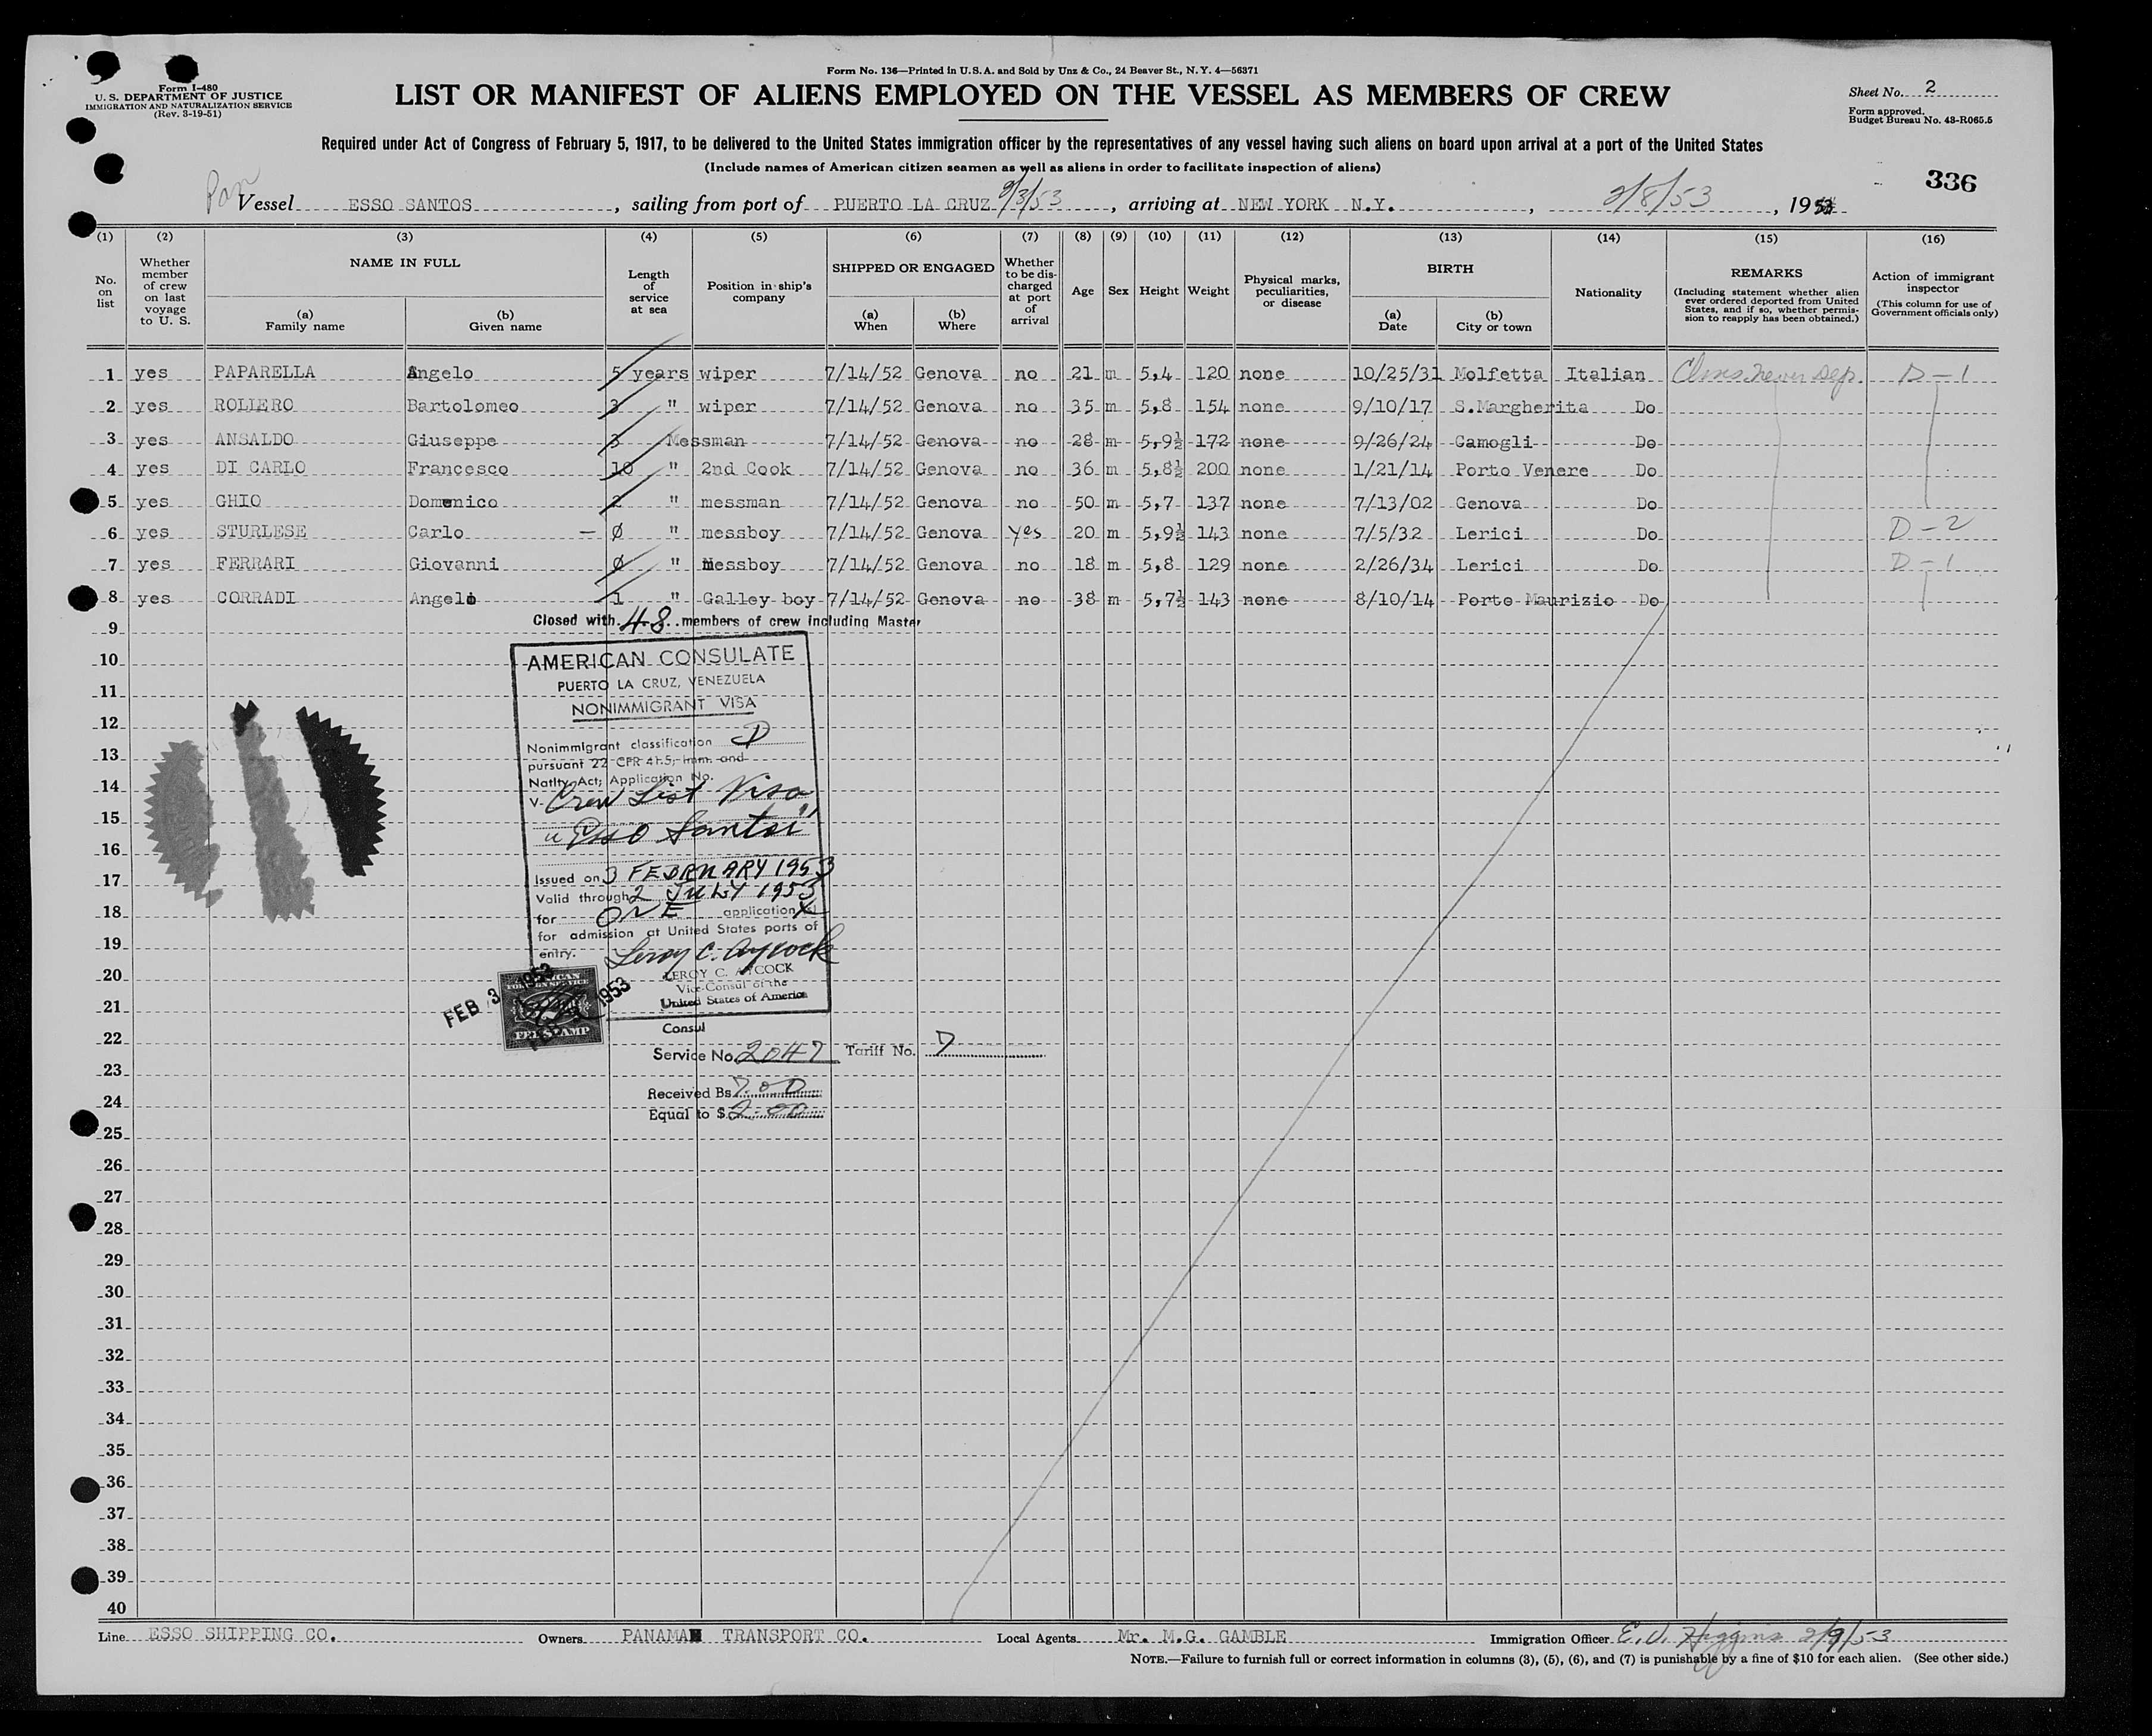 Form No. 136—Printed in U.S.A. and Sold by Unz & Co., 24 Beaver St., N.Y. 4—56371
Form I-480
U. S. DEPARTMENT OF JUSTICE
IMMIGRATION AND NATURALIZATION SERVICE
(Rev. 3-19-51)
LIST OR MANIFEST OF ALIENS EMPLOYED ON THE VESSEL AS MEMBERS OF CREW
Sheet No. 2
Form approved.
Budget Bureau No. 43-R065.5
Required under Act of Congress of February 5, 1917, to be delivered to the United States immigration officer by the representatives of any vessel having such aliens on board upon arrival at a port of the United States
(Include names of American citizen seamen as well as aliens in order to facilitate inspection of aliens)
336
Pan
Vessel ESSO SANTOS, sailing from port of PUERTO LA CRUZ 2/3/53, arriving at NEW YORK N.Y., 2/8/53, 1953
(1) (2) (3) (4) (5) (6) (7) (8) (9) (10) (11) (12) (13) (14) (15) (16)
No. on list
Whether member of crew on last voyage to U. S.
NAME IN FULL
(a) Family name
(b) Given name
Length of service at sea
Position in ship's company
SHIPPED OR ENGAGED
(a) When
(b) Where
Whether to be discharged at port of arrival
Age
Sex
Height
Weight
Physical marks, peculiarities, or disease
BIRTH
(a) Date
(b) City or town
Nationality
REMARKS
(Including statement whether alien ever ordered deported from United States, and if so, whether permission to reapply has been obtained.)
Action of immigrant inspector
(This column for use of Government officials only)
1 yes PAPARELLA Angelo 5 years wiper 7/14/52 Genova no 21 m 5,4 120 none 10/25/31 Molfetta Italian Claims never dep. D-1
2 yes ROLIERO Bartolomeo 3 " wiper 7/14/52 Genova no 35 m 5,8 154 none 9/10/17 S.Margherita Do
3 yes ANSALDO Giuseppe 3 Messman 7/14/52 Genova no 28 m 5,9½ 172 none 9/26/24 Camogli Do
4 yes DI CARLO Francesco 10 " 2nd Cook 7/14/52 Genova no 36 m 5,8½ 200 none 1/21/14 Porto Venere Do
5 yes GHIO Domenico 2 " messman 7/14/52 Genova no 50 m 5,7 137 none 7/13/02 Genova Do
6 yes STURLESE Carlo — 0 " messboy 7/14/52 Genova yes 20 m 5,9½ 143 none 7/5/32 Lerici Do D-2
7 yes FERRARI Giovanni 0 " Messboy 7/14/52 Genova no 18 m 5,8 129 none 2/26/34 Lerici Do D-1
8 yes CORRADI Angelo 1 " Galley boy 7/14/52 Genova no 38 m 5,7½ 143 none 8/10/14 Porto Maurizio Do
Closed with 48 members of crew including Master
9
10
11
12
13
14
15
16
17
18
19
20
21
22
23
24
25
26
27
28
29
30
31
32
33
34
35
36
37
38
39
40
AMERICAN CONSULATE
PUERTO LA CRUZ, VENEZUELA
NONIMMIGRANT VISA
Nonimmigrant classification D
pursuant 22 CFR 41.5; Imm. and
Natlty Act; Application No.
V- Crew List Visa
"Esso Santos"
Issued on 3 FEBRUARY 1953
Valid through 2 JULY 1953
for ONE application
for admission at United States ports of
entry.
Leroy C. Aycock
LEROY C. AYCOCK
Vice-Consul of the
United States of America
Consul
FEB 3 1953
1953
AMERICAN
FOREIGN SERVICE
FEE STAMP
Service No. 2047 Tariff No. D
Received Bs 7.00
Equal to $ 2.00
Line ESSO SHIPPING CO. Owners PANAMA TRANSPORT CO. Local Agents Mr. M.G. GAMBLE Immigration Officer E. V. Higgins 2/9/53
NOTE.—Failure to furnish full or correct information in columns (3), (5), (6), and (7) is punishable by a fine of $10 for each alien. (See other side.)